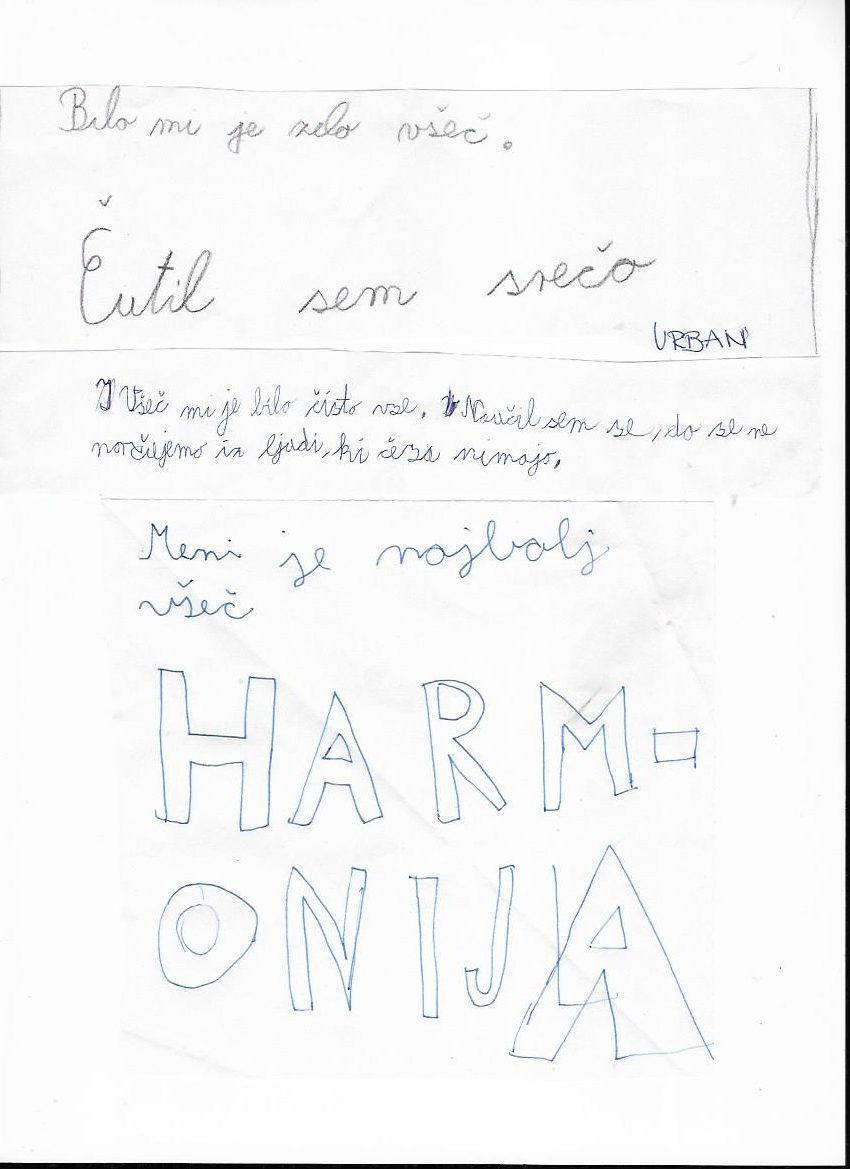 Bilo mi je zelo všeč.
Čutil sem srečo
URBAN
Všeč mi je bilo čisto vse. Naučil sem se, da se ne
norčujemo iz ljudi, ki česa nimajo.
Meni je najbolj
všeč
HARM-
ONIJA